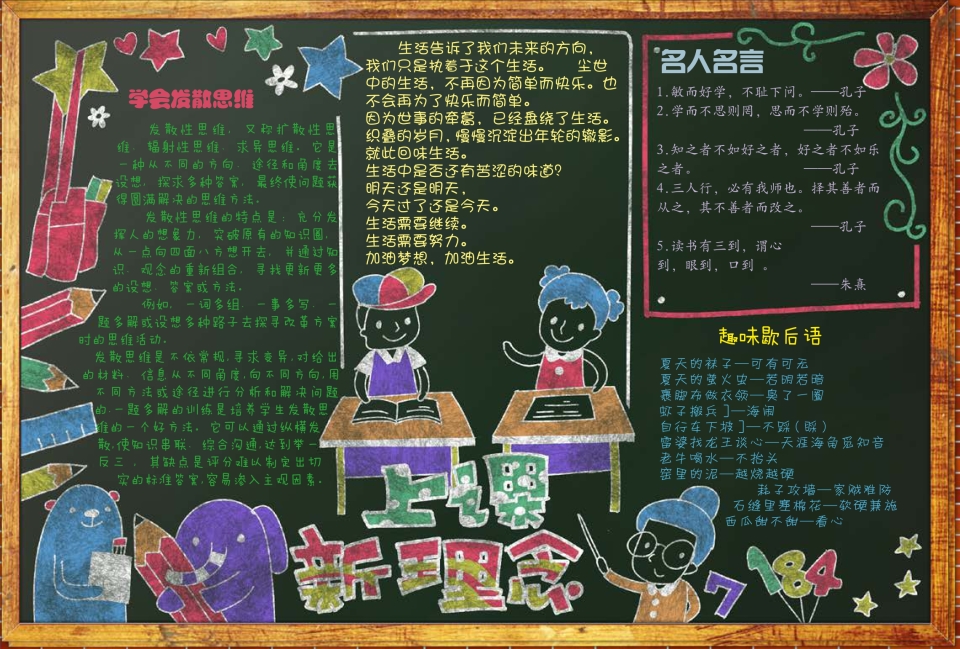 学会发散思维
发散性思维，又称扩散性思
维、辐射性思维、求异思维。它是
一种从不同的方向、途径和角度去
设想，探求多种答案，最终使问题获
得圆满解决的思维方法。
发散性思维的特点是：充分发
挥人的想象力，突破原有的知识圈，
从一点向四面八方想开去，并通过知
识、观念的重新组合，寻找更新更多
的设想、答案或方法。
例如，一词多组、一事多写、一
题多解或设想多种路子去探寻改革方案
时的思维活动。
发散思维是不依常规,寻求变异,对给出
的材料、信息从不同角度,向不同方向,用
不同方法或途径进行分析和解决问题
的.一题多解的训练是培养学生发散思
维的一个好方法。它可以通过纵横发
散,使知识串联、综合沟通,达到举一
反三。其缺点是评分难以制定出切
实的标准答案,容易渗入主观因素。
生活告诉了我们未来的方向，
我们只是执着于这个生活。 尘世
中的生活，不再因为简单而快乐。也
不会再为了快乐而简单。
因为世事的牵葛，已经盘绕了生活。
织叠的岁月,慢慢沉淀出年轮的辙影。
就此回味生活。
生活中是否还有苦涩的味道?
明天还是明天，
今天过了还是今天。
生活需要继续。
生活需要努力。
加油梦想，加油生活。
名人名言
1.敏而好学，不耻下问。——孔子
2.学而不思则罔，思而不学则殆。
——孔子
3.知之者不如好之者，好之者不如乐
之者。 ——孔子
4.三人行，必有我师也。择其善者而
从之，其不善者而改之。
——孔子
5.读书有三到，谓心
到，眼到，口到 。
——朱熹
趣味歇后语
夏天的袜子—可有可无
夏天的萤火虫—若明若暗
裹脚布做衣领—臭了一圈
蚊子搬兵]—海闹
自行在下坡]—不踩(睬)
雷婆找龙王谈心—天涯海角觅知音
老牛喝水—不抬头
窑里的泥—越烧越硬
耗子攻墙—家贼难防
石缝里塞棉花—软硬兼施
西瓜甜不甜—看心
上之课
新理念
7 184